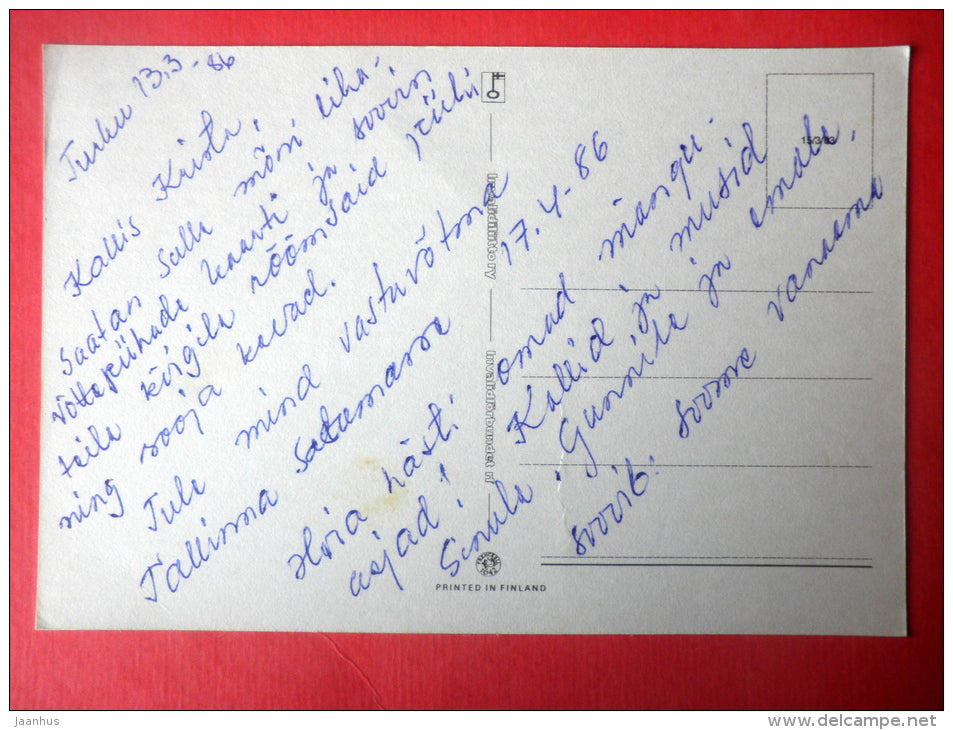 Turku 13.3-86
Kallis Krista,
Saatan Sulle mõni liha-
võttepühade kaarti ja soovin
teile kõigile rõõmsaid pühi
ning sooja kevad.
Tule mind vastuvõtma
Tallinna Satamasse 17.4-86
Hoia hästi omad mängu-
asjad! Kallid ja musid
Sinule, Gunnile ja emale.
soovib: soome vanaema
Invalidiliitto ry
Invalidförbundet rf
15/3/83
PRINTED IN FINLAND
Jaanhus
www.delcampe.net